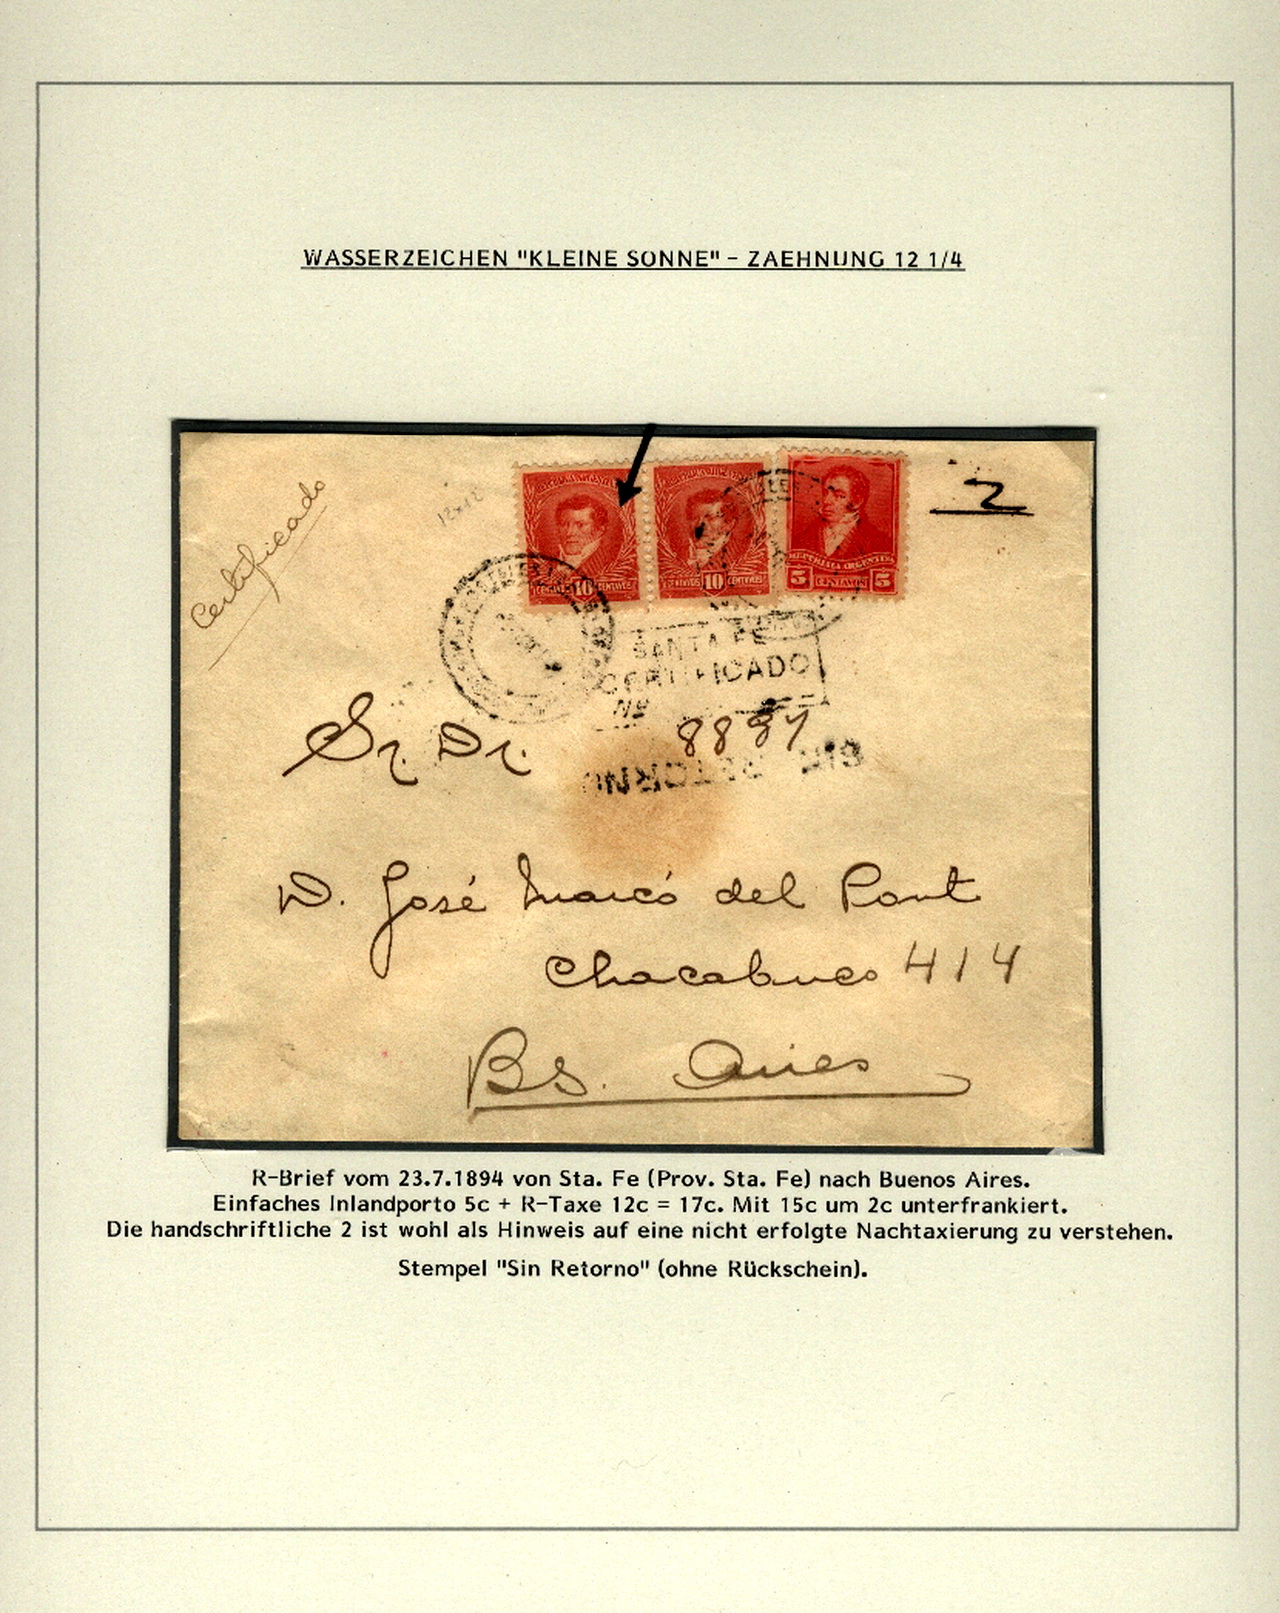 WASSERZEICHEN "KLEINE SONNE" - ZAEHNUNG 12 1/4
Certificado
12x12
2
10 CENTAVOS
CENTAVOS 10 CENTAVOS
REPUBLICA ARGENTINA
5 CENTAVOS 5
SANTA FE
CERTIFICADO
Nº
8897
SIN RETORNO
Sr. Dr.
D. José Marcó del Pont
Chacabuco 414
Bs. Aires
R-Brief vom 23.7.1894 von Sta. Fe (Prov. Sta. Fe) nach Buenos Aires.
Einfaches Inlandporto 5c + R-Taxe 12c = 17c. Mit 15c um 2c unterfrankiert.
Die handschriftliche 2 ist wohl als Hinweis auf eine nicht erfolgte Nachtaxierung zu verstehen.
Stempel "Sin Retorno" (ohne Rückschein).